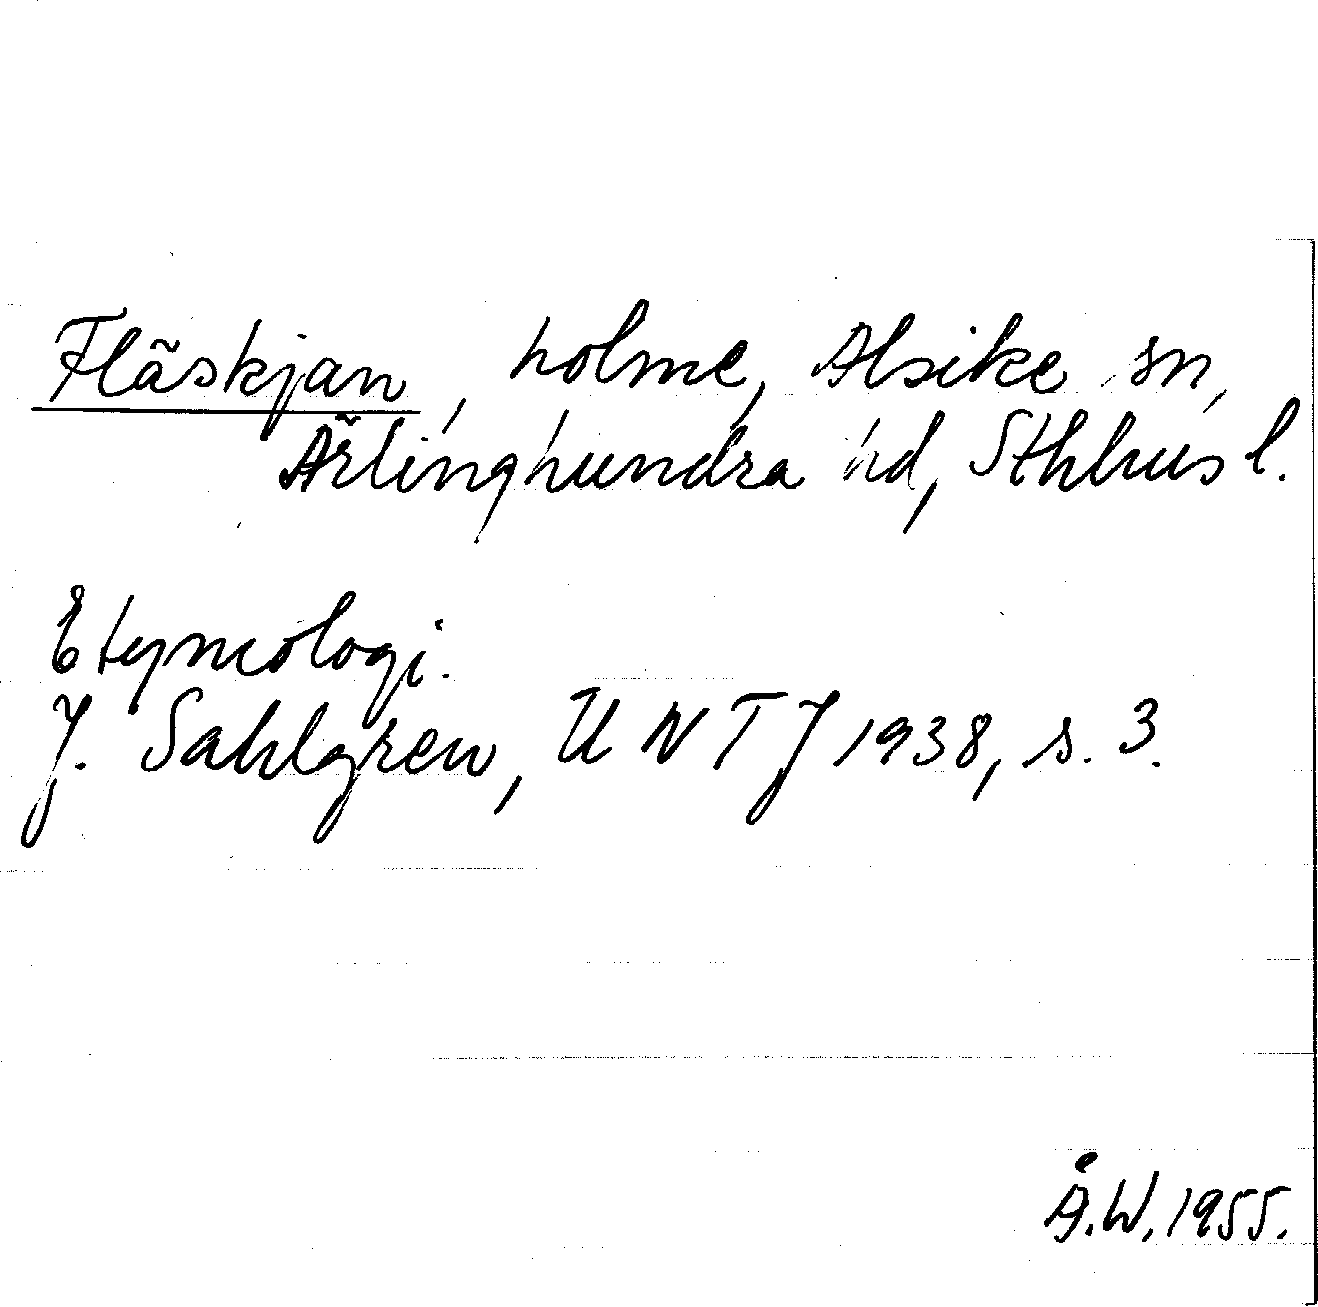 Fläskjan, holme, Alsike sn,
Ärlinghundra hd, Sthlms l.
Etymologi.
J. Sahlgren, UNTJ 1938, s. 3.
Å.W. 1955.